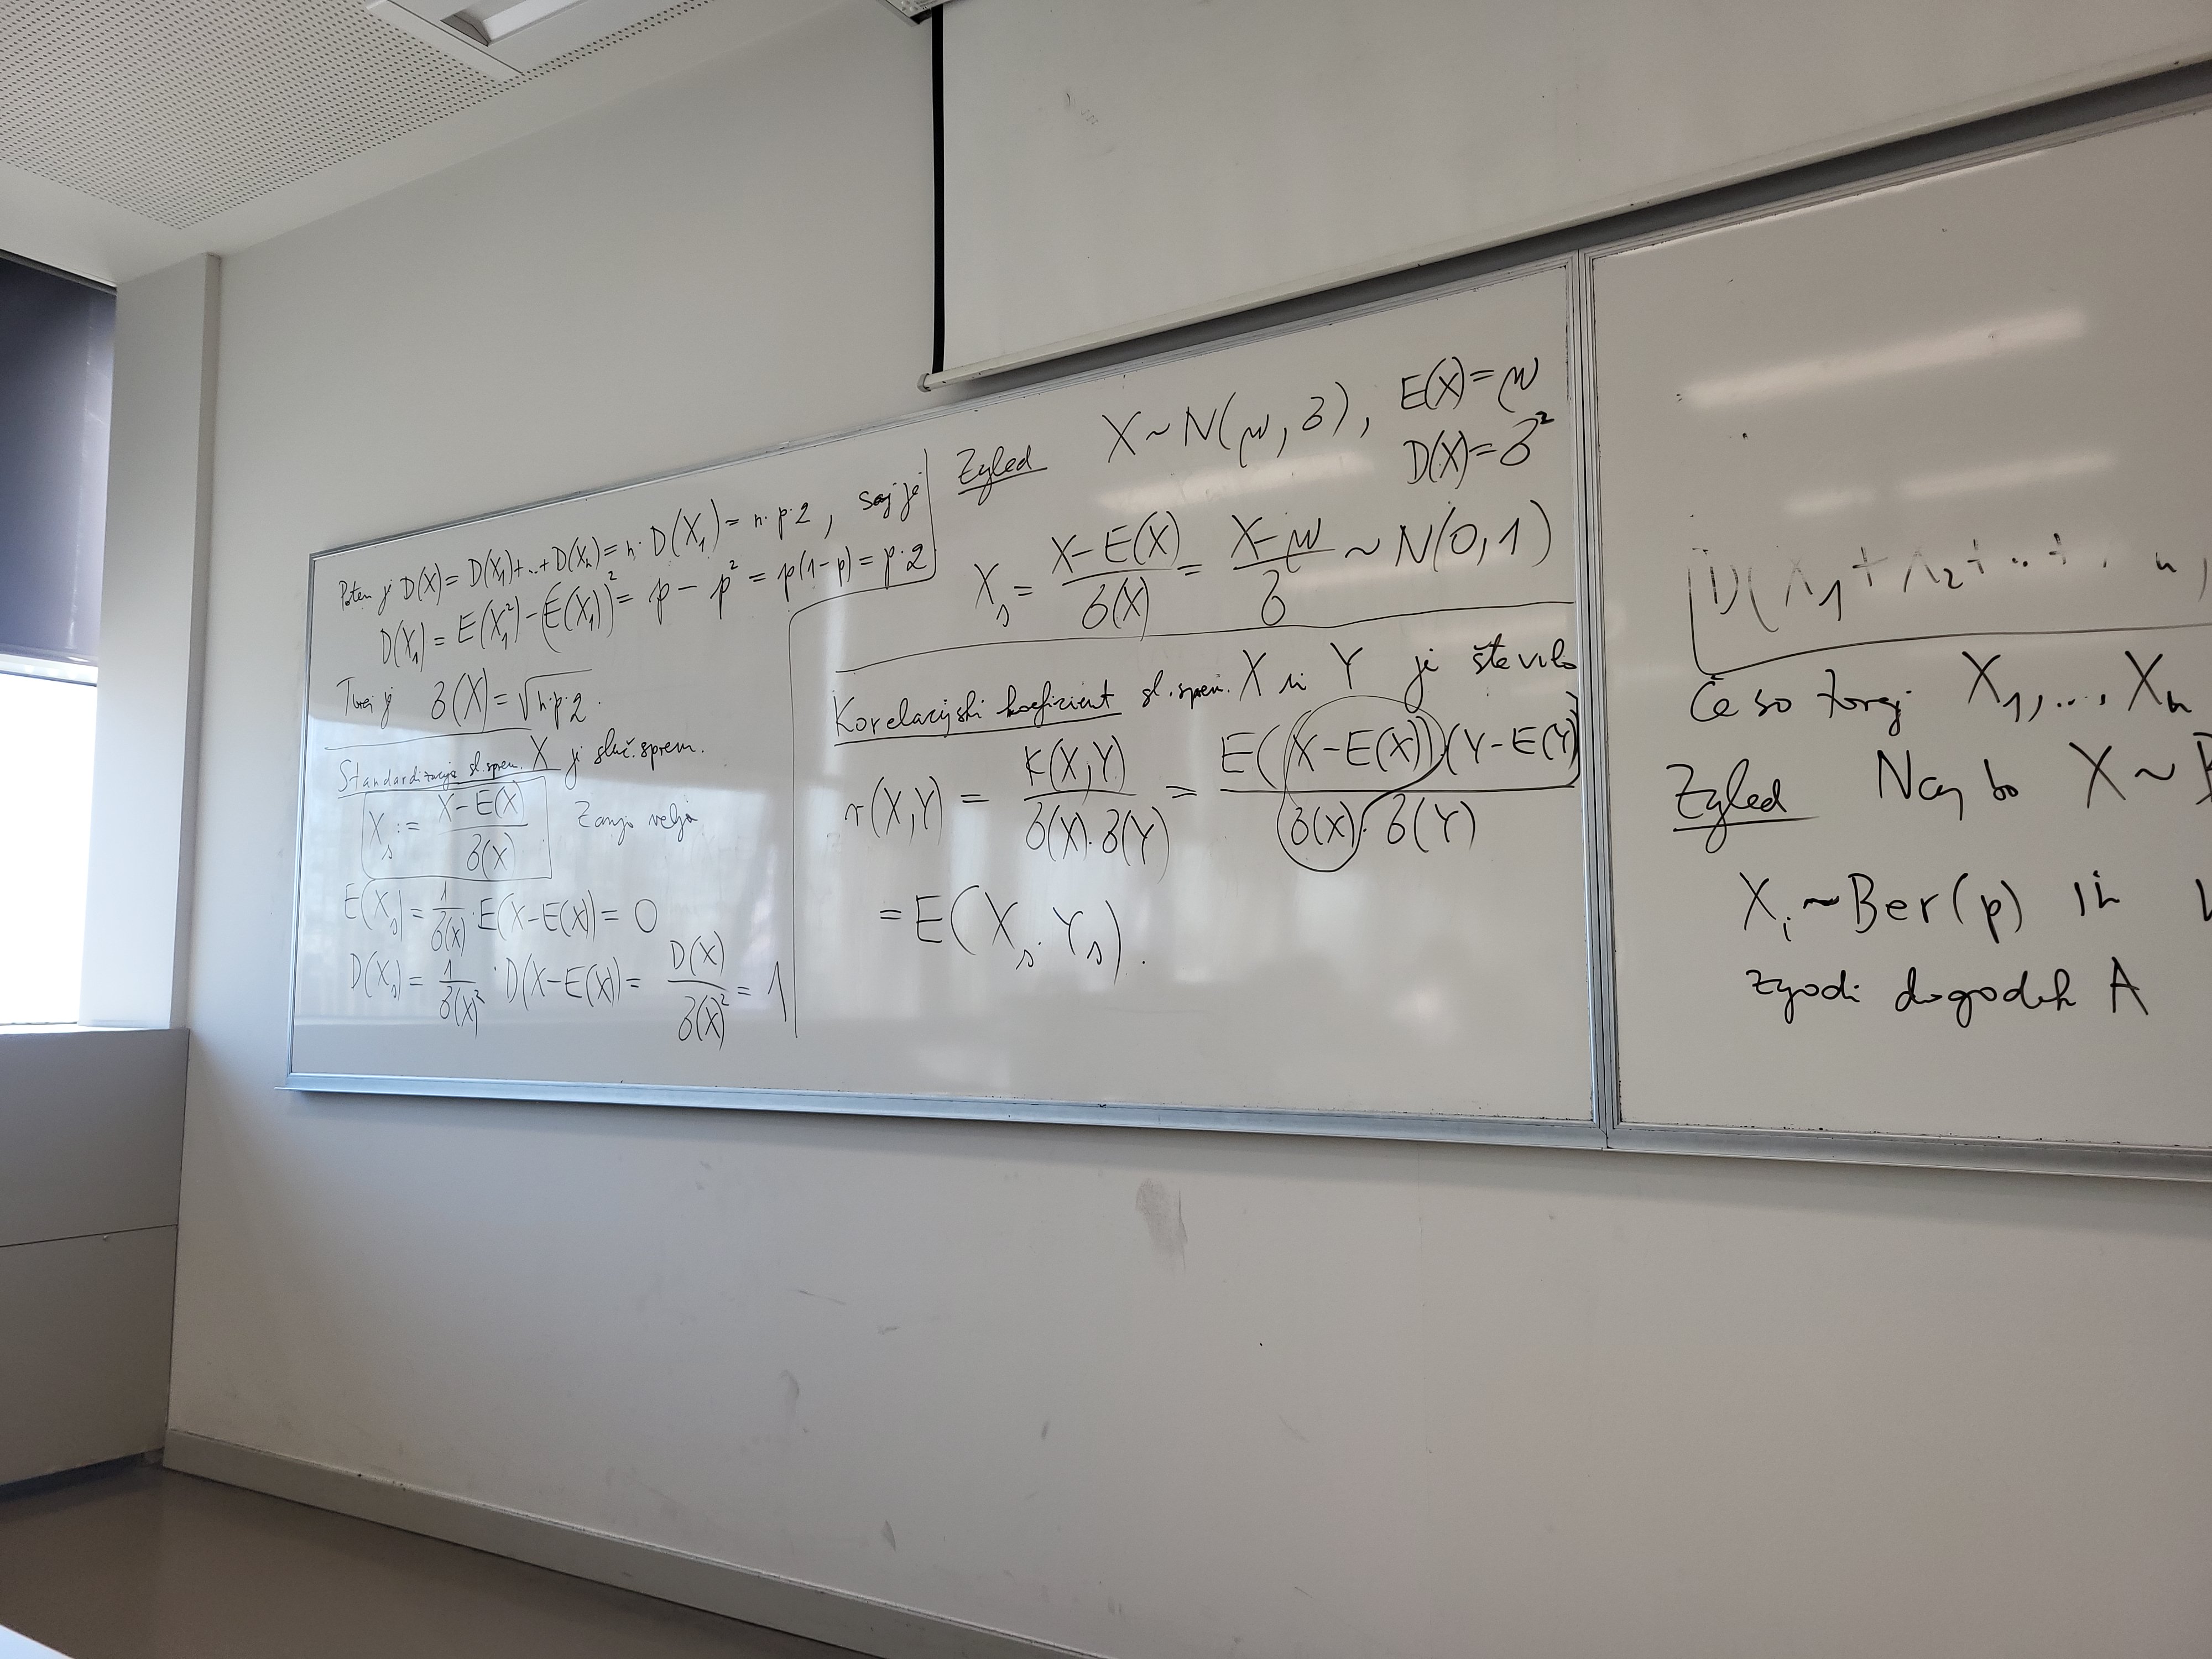 Potem je D(X) = D(X₁)+...+D(Xₙ) = n·D(X₁) = n·p·q, saj je
D(X₁) = E(X₁²) - (E(X₁))² = p - p² = p(1-p) = p·q
Torej je σ(X) = √n·p·q.
Standardizacija sl. sprem. X je sluč. sprem.
Xₛ := (X-E(X))/σ(X) Zanjo velja
E(Xₛ) = 1/σ(X) · E(X-E(X)) = 0
D(Xₛ) = 1/σ(X)² · D(X-E(X)) = D(X)/σ(X)² = 1
Zgled X ~ N(μ, σ), E(X) = μ
D(X) = σ²
Xₛ = (X-E(X))/σ(X) = (X-μ)/σ ~ N(0,1)
Korelacijski koeficient sl. sprem. X in Y je število
r(X,Y) = K(X,Y)/(σ(X)·σ(Y)) = E((X-E(X))(Y-E(Y)))/(σ(X)·σ(Y))
= E(Xₛ·Yₛ).
D(X₁+X₂+...+
Če so torej X₁,..., Xₙ
Zgled Naj bo X ~
Xᵢ ~ Ber(p) in
zgodi dogodek A